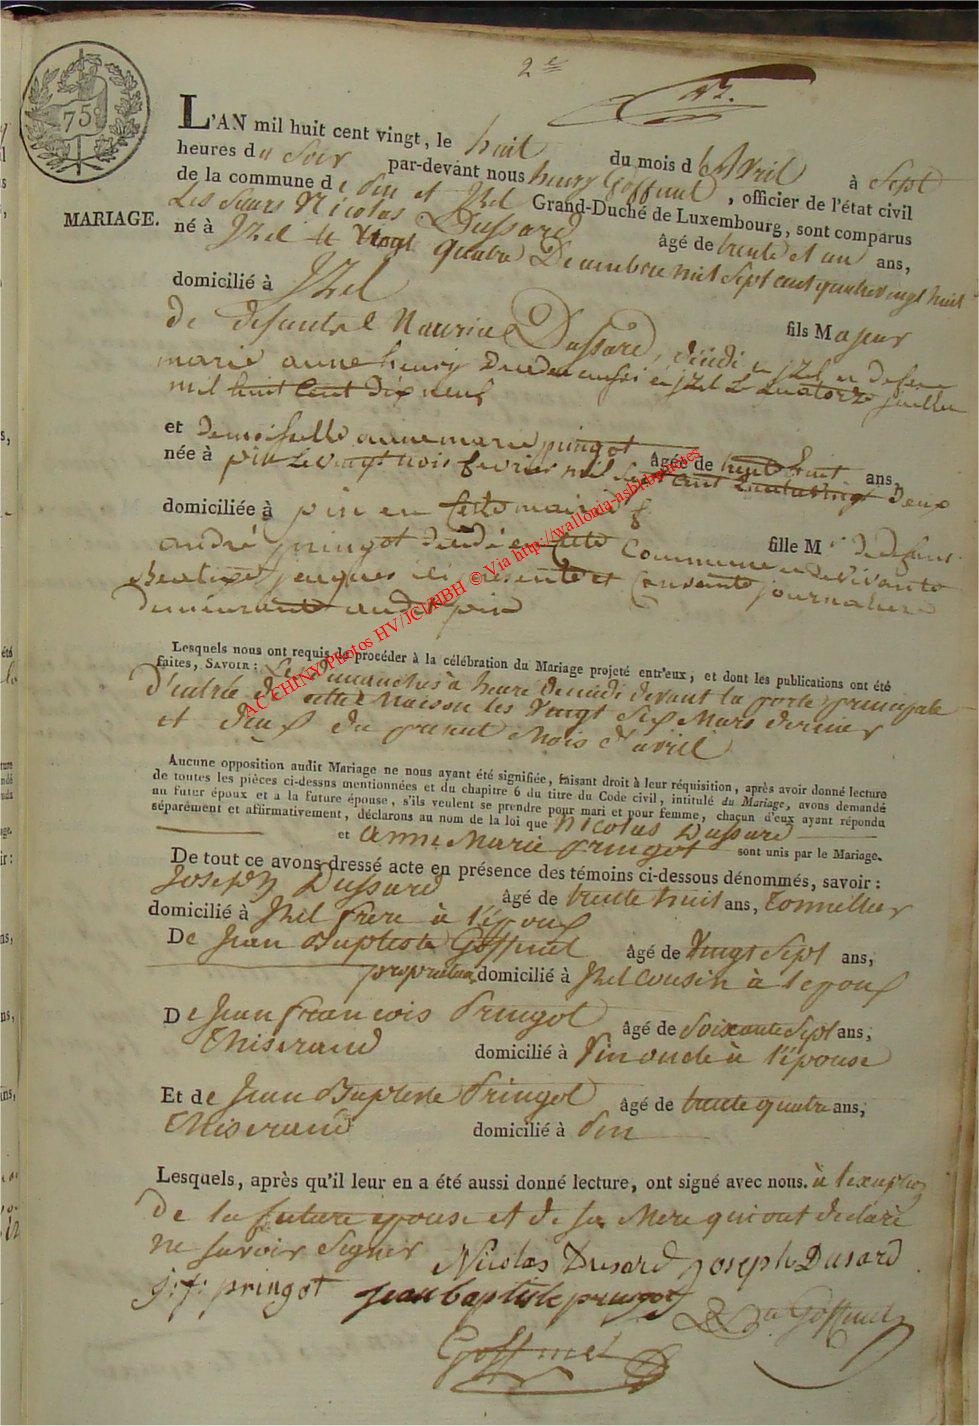 2e
75
L'AN mil huit cent vingt, le huit du mois d'Avril à Sept
heures du Soir par-devant nous henry Goffinet, officier de l'état civil
de la commune de Pin et Izel Grand-Duché de Luxembourg, sont comparus
MARIAGE.
Les Sieurs Nicolas Dussard âgé de trente et un ans,
né à Izel le Vingt quatre Decembre mil Sept cent quatre vingt huit
domicilié à Izel fils Majeur
de defunt Maurice Dussard, décédé en izel et de feue
marie anne henry décédée aussi en izel le quatorze juillet
mil huit cent dix neuf
et demoiselle anne marie pringot âgée de trente huit ans,
née à pin le vingt trois fevrier mil Sept cent quatre vingt deux
domiciliée à pin en cette mairie
fille M de defunt
andré pringot décédé en cette Commune et de Vivante
jacques ici presente et Consante journaliere
demeurante audit pin
Lesquels nous ont requis de procéder à la célébration du Mariage projeté entr'eux, et dont les publications ont été
faites, SAVOIR : Les Dimanches à heure de midi devant la porte principale
d'entrée de cette Maison les Vingt Six Mars dernier
et deux du present Mois d'avril
Aucune opposition audit Mariage ne nous ayant été signifiée, faisant droit à leur réquisition, après avoir donné lecture
de toutes les pièces ci-dessus mentionnées et du chapitre 6 du titre du Code civil, intitulé du Mariage, avons demandé
au futur époux et à la future épouse, s'ils veulent se prendre pour mari et pour femme, chacun d'eux ayant répondu
séparément et affirmativement, déclarons au nom de la loi que Nicolas Dussard
et Anne Marie Pringot sont unis par le Mariage.
De tout ce avons dressé acte en présence des témoins ci-dessous dénommés, savoir :
Joseph Dussard âgé de trente huit ans, Tonnellier
domicilié à Izel frère à l'époux
De Jean Baptiste Goffinet âgé de Vingt Sept ans,
proprietaire domicilié à Izel cousin à l'epoux
De Jean francois Pringot âgé de Soixante Sept ans,
Thiserand domicilié à Pin oncle à l'épouse
Et de Jean Baptiste Pringot âgé de trente quatre ans,
Thiserand domicilié à Pin
Lesquels, après qu'il leur en a été aussi donné lecture, ont signé avec nous. à l'exception
De la future epouse et de sa Mere qui ont declaré
ne savoir Signer Nicolas Dusard Joseph Dusard
j: f: pringot jean baptiste pringot
J B Goffinet
Goffinet
AC CHINY/Photos HV/JCI/RBH © Via http://wallonia-asbl.be/notes